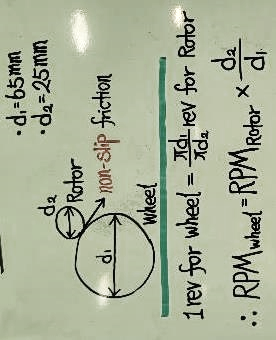 • d₁=65mm
• d₂=25mm
d₂
Rotor
non-slip friction
d₁
Wheel
1 rev for wheel = πd₁/πd₂ rev for Rotor
∴ RPM wheel = RPM Rotor × d₂/d₁